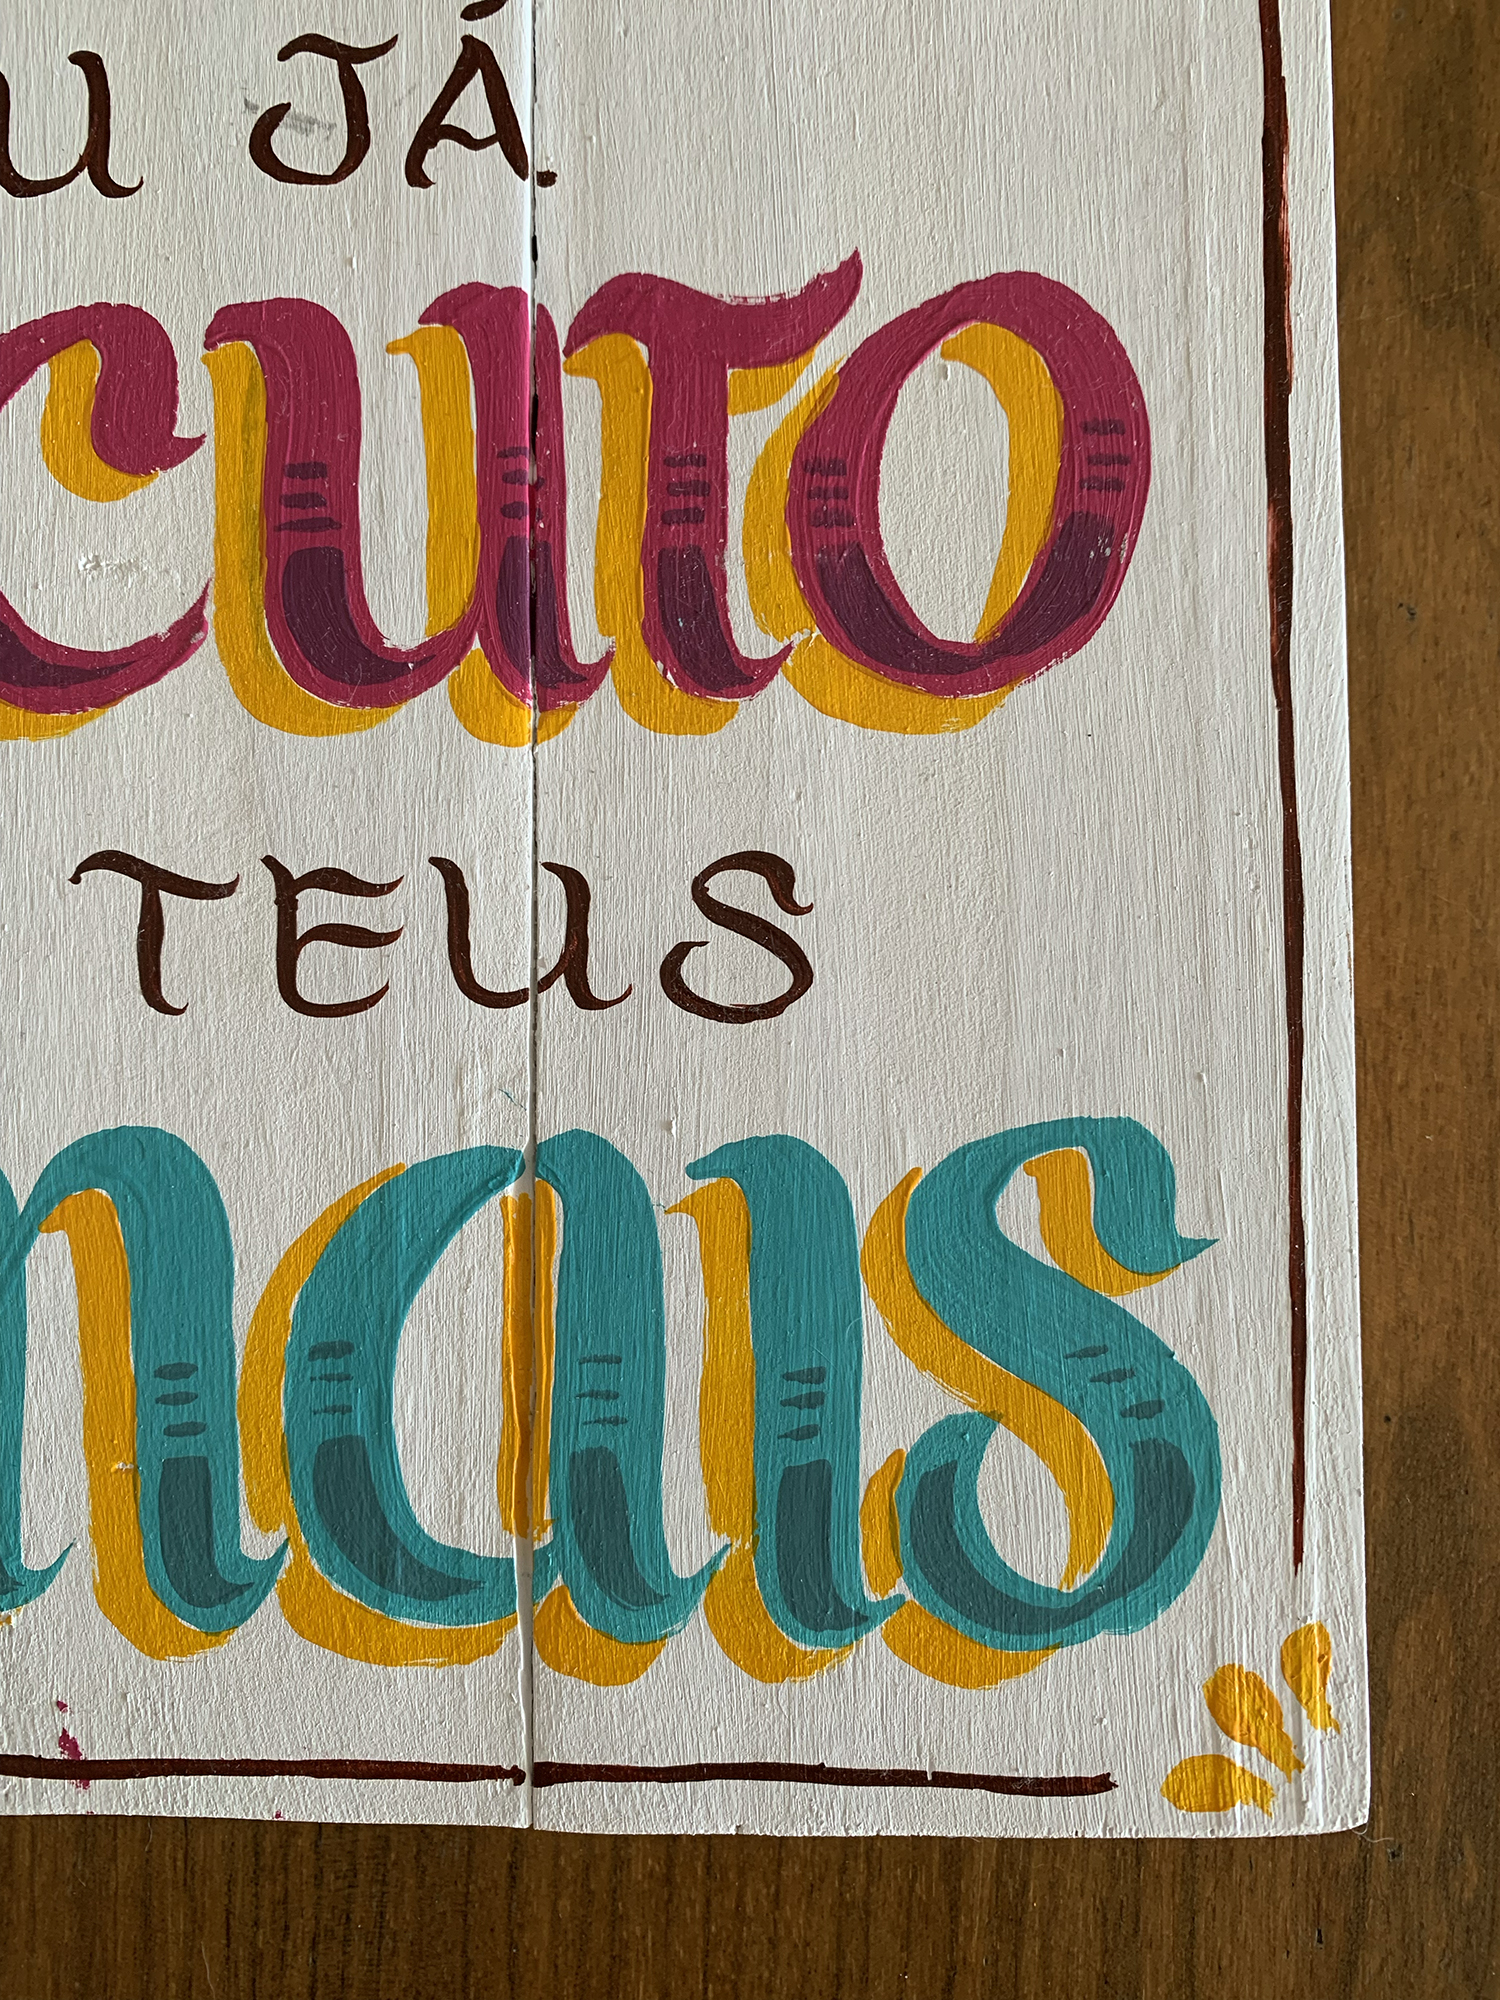 U JÁ
CUTO
TEUS
NAIS